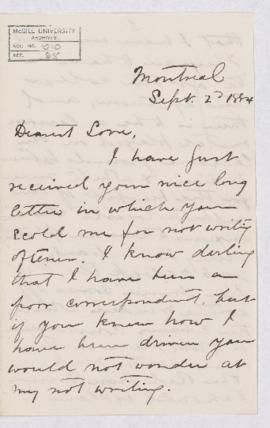 McGILL UNIVERSITY
ARCHIVES
ACC. NO.
REF.
Montreal
Sept. 2d 1884
Dearest Love,
I have just
received your nice long
letter in which you
scold me for not writing
oftener. I know darling
that I have been a
poor correspondent, but
if you knew how I
have been driven you
would not wonder at
my not writing.